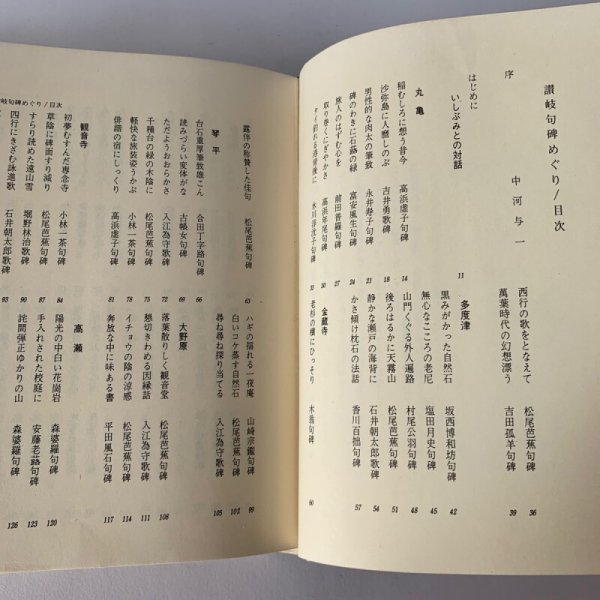 讃岐句碑めぐり/目次
序 中河与一
はじめに
いしぶみとの対話 11
丸亀
稲むしろに想う昔今 高浜虚子句碑 14
沙弥島に人磨しのぶ 吉井勇歌碑 18
男性的な肉太の筆致 永井寿子句碑 21
碑のわきに石蕗の緑 富安風生句碑 24
旅人のはずむ心を 前田普羅句碑 27
取り巻くにぎやかさ 高浜年尾句碑 30
釣れる海背後に 水川浮沈子句碑 33
西行の歌をとなえて 松尾芭蕉句碑 36
萬葉時代の幻想漂う 吉田孤羊句碑 39
多度津
黒みがかった自然石 坂西博和坊句碑 42
無心なこころの老尼 塩田月史句碑 45
山門くぐる外人遍路 村尾公羽句碑 48
後ろはるかに天霧山 松尾芭蕉句碑 51
静かな瀬戸の海背に 石井朝太郎歌碑 54
かさ傾け枕石の法話 香川百拙句碑 57
金蔵寺
老杉の横にひっそり 木翁句碑 60
岐句碑めぐり/目次
露伴の称賛した佳句 松尾芭蕉句碑 63
琴平
台石重厚筆致雄こん 合田丁字路句碑 66
読みづらい変体がな 古帳女句碑 69
ただようおおらかさ 入江為守歌碑 72
千種台の緑の木陰に 松尾芭蕉句碑 75
軽快な旅装姿うかぶ 小林一茶句碑 78
俳諧の宿にしっくり 高浜虚子句碑 81
観音寺
初夢むすんだ専念寺 小林一茶句碑 84
草陰に碑面すり減り 松尾芭蕉句碑 87
すらり読めた遠山雪 堀野林治歌碑 90
四行にきざむ詠進歌 石井朝太郎歌碑 93
ハギの揺れる一夜庵 山崎宗鑑句碑 99
白いコケ蒸す自然石 松尾芭蕉句碑 102
尋ね尋ね探り当てる 入江為守歌碑 105
大野原
落葉散りしく観音堂 松尾芭蕉句碑 108
懇切きわめる因縁話 入江為守歌碑 111
イチョウの陰の涼感 松尾芭蕉句碑 114
奔放な中に味ある書 平田風石句碑 117
高瀬
陽光の中白い花崗岩 森婆羅句碑 120
手入れされた校庭に 安藤老蕗句碑 123
詫間弾正ゆかりの山 森婆羅句碑 126